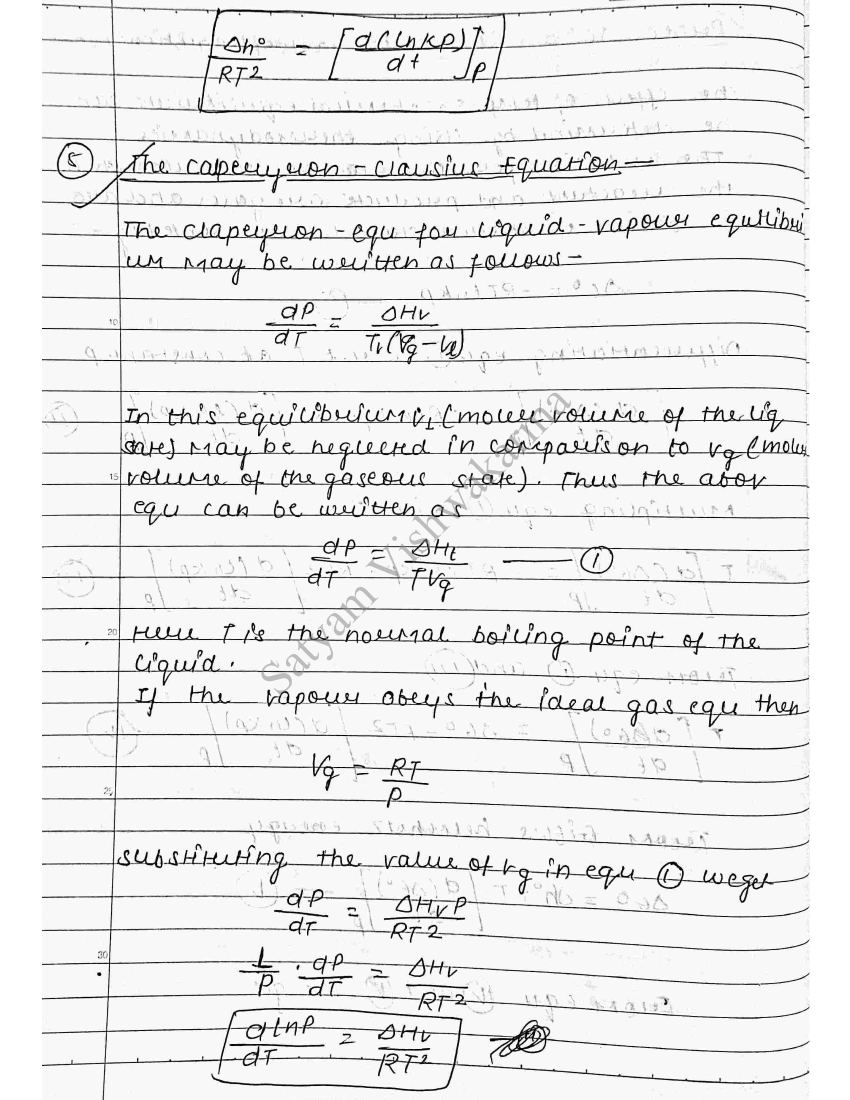 Δh° / RT2 = [d(lnKP) / dt]P
⑤ The capeuyron - Clausius Equation —
The Clapeyron - equ for liquid - vapour equilibri
um may be written as follows -
10
dP / dT = ΔHv / Tv(Vg - Vl)
In this equilibrium VL (moler volume of the liq
state) may be neglected in comparison to Vg (moler
15 volume of the gaseous state). Thus the abov
equ can be written as
dP / dT = ΔHt / TVg —— ①
20 Here T is the normal boiling point of the
liquid.
If the vapour obeys the ideal gas equ then
Vg = RT / P
25
substituting the value of Vg in equ ① weget
dP / dT = ΔHvP / RT2
30
1 / P . dP / dT = ΔHv / RT2
dlnP / dT = ΔHv / RT2
Satyam Vishwakarma